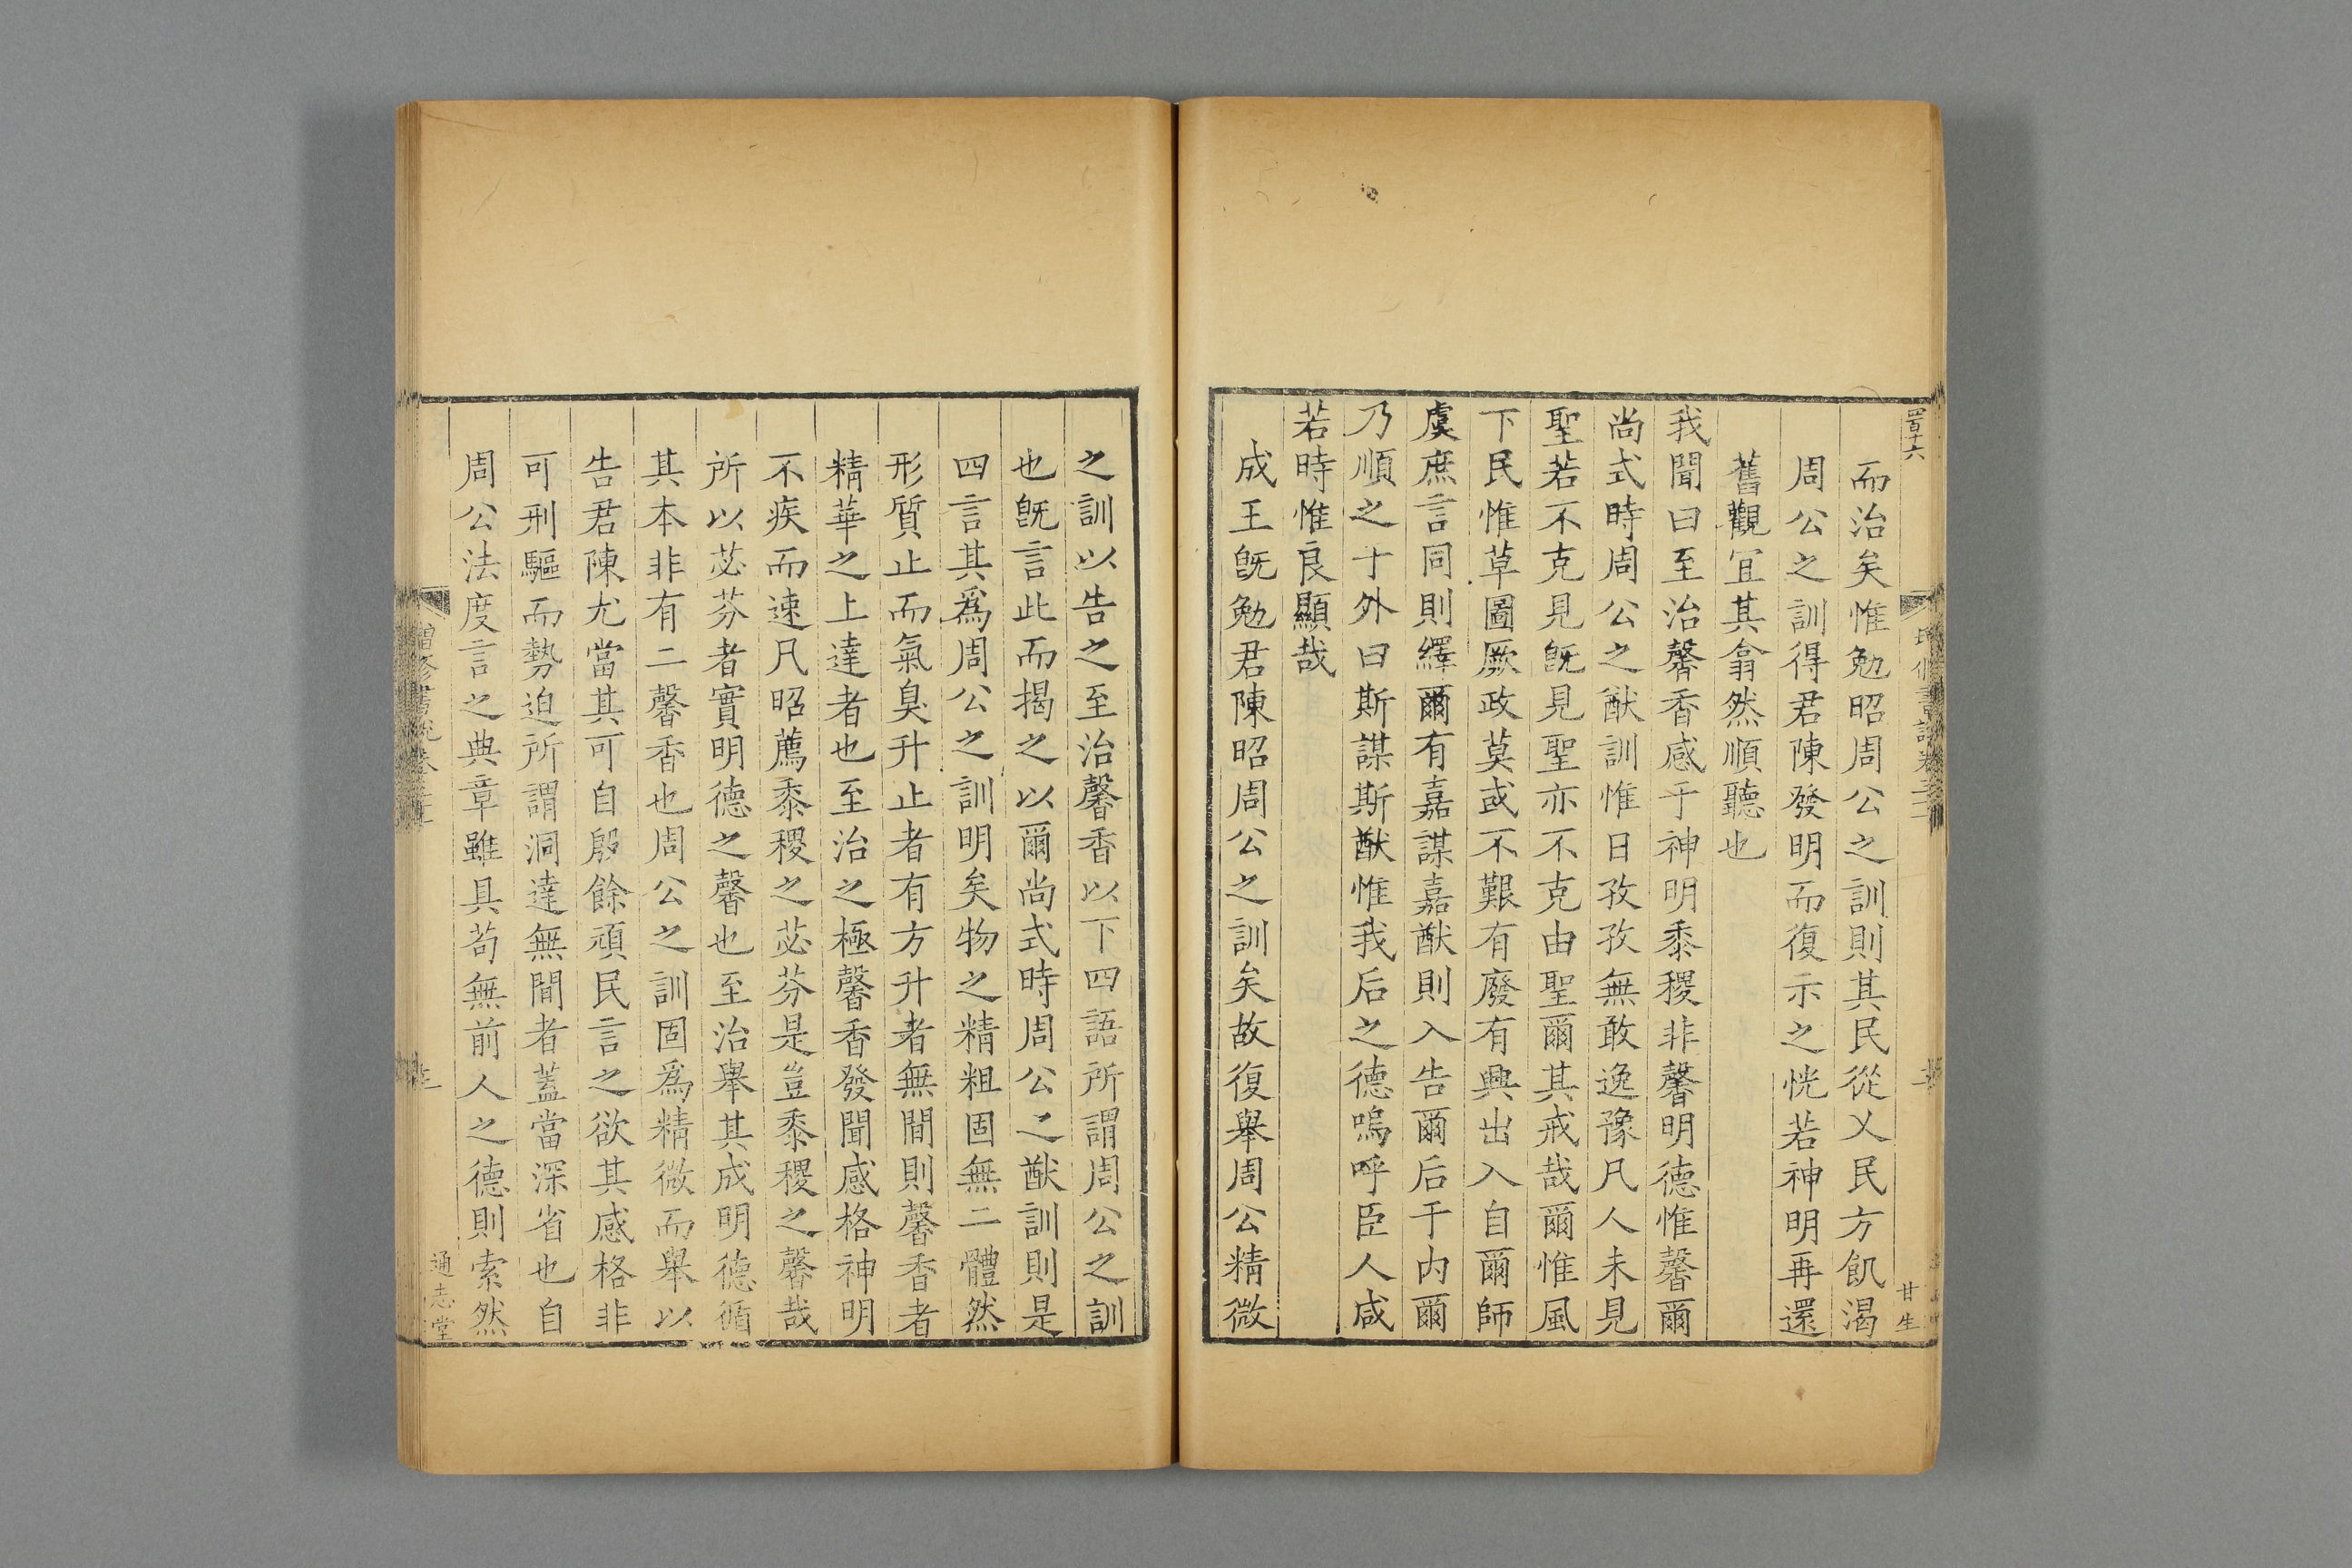 而治矣惟勉昭周公之訓則其民從乂民方飢渴
周公之訓得君陳發明而復示之恍若神明再還
舊觀宜其翕然順聽也
我聞曰至治馨香感于神明黍稷非馨明德惟馨爾
尚式時周公之猷訓惟日孜孜無敢逸豫凡人未見
聖若不克見旣見聖亦不克由聖爾其戒哉爾惟風
下民惟草圖厥政莫或不艱有廢有興出入自爾師
虞庶言同則繹爾有嘉謀嘉猷則入告爾后于内爾
乃順之于外曰斯謀斯猷惟我后之德嗚呼臣人咸
若時惟良顯哉
成王旣勉君陳昭周公之訓矣故復舉周公精微
之訓以告之至治馨香以下四語所謂周公之訓
也旣言此而揭之以爾尚式時周公之猷訓則是
四言其爲周公之訓明矣物之精粗固無二體然
形質止而氣臭升止者有方升者無間則馨香者
精華之上達者也至治之極馨香發聞感格神明
不疾而速凡昭薦黍稷之苾芬是豈黍稷之馨哉
所以苾芬者實明德之馨也至治舉其成明德循
其本非有二馨香也周公之訓固爲精微而舉以
告君陳尤當其可自殷餘頑民言之欲其感格非
可刑驅而勢迫所謂洞達無間者蓋當深省也自
周公法度言之典章雖具苟無前人之德則索然
四百十六
甘生
增修書說卷
通志堂